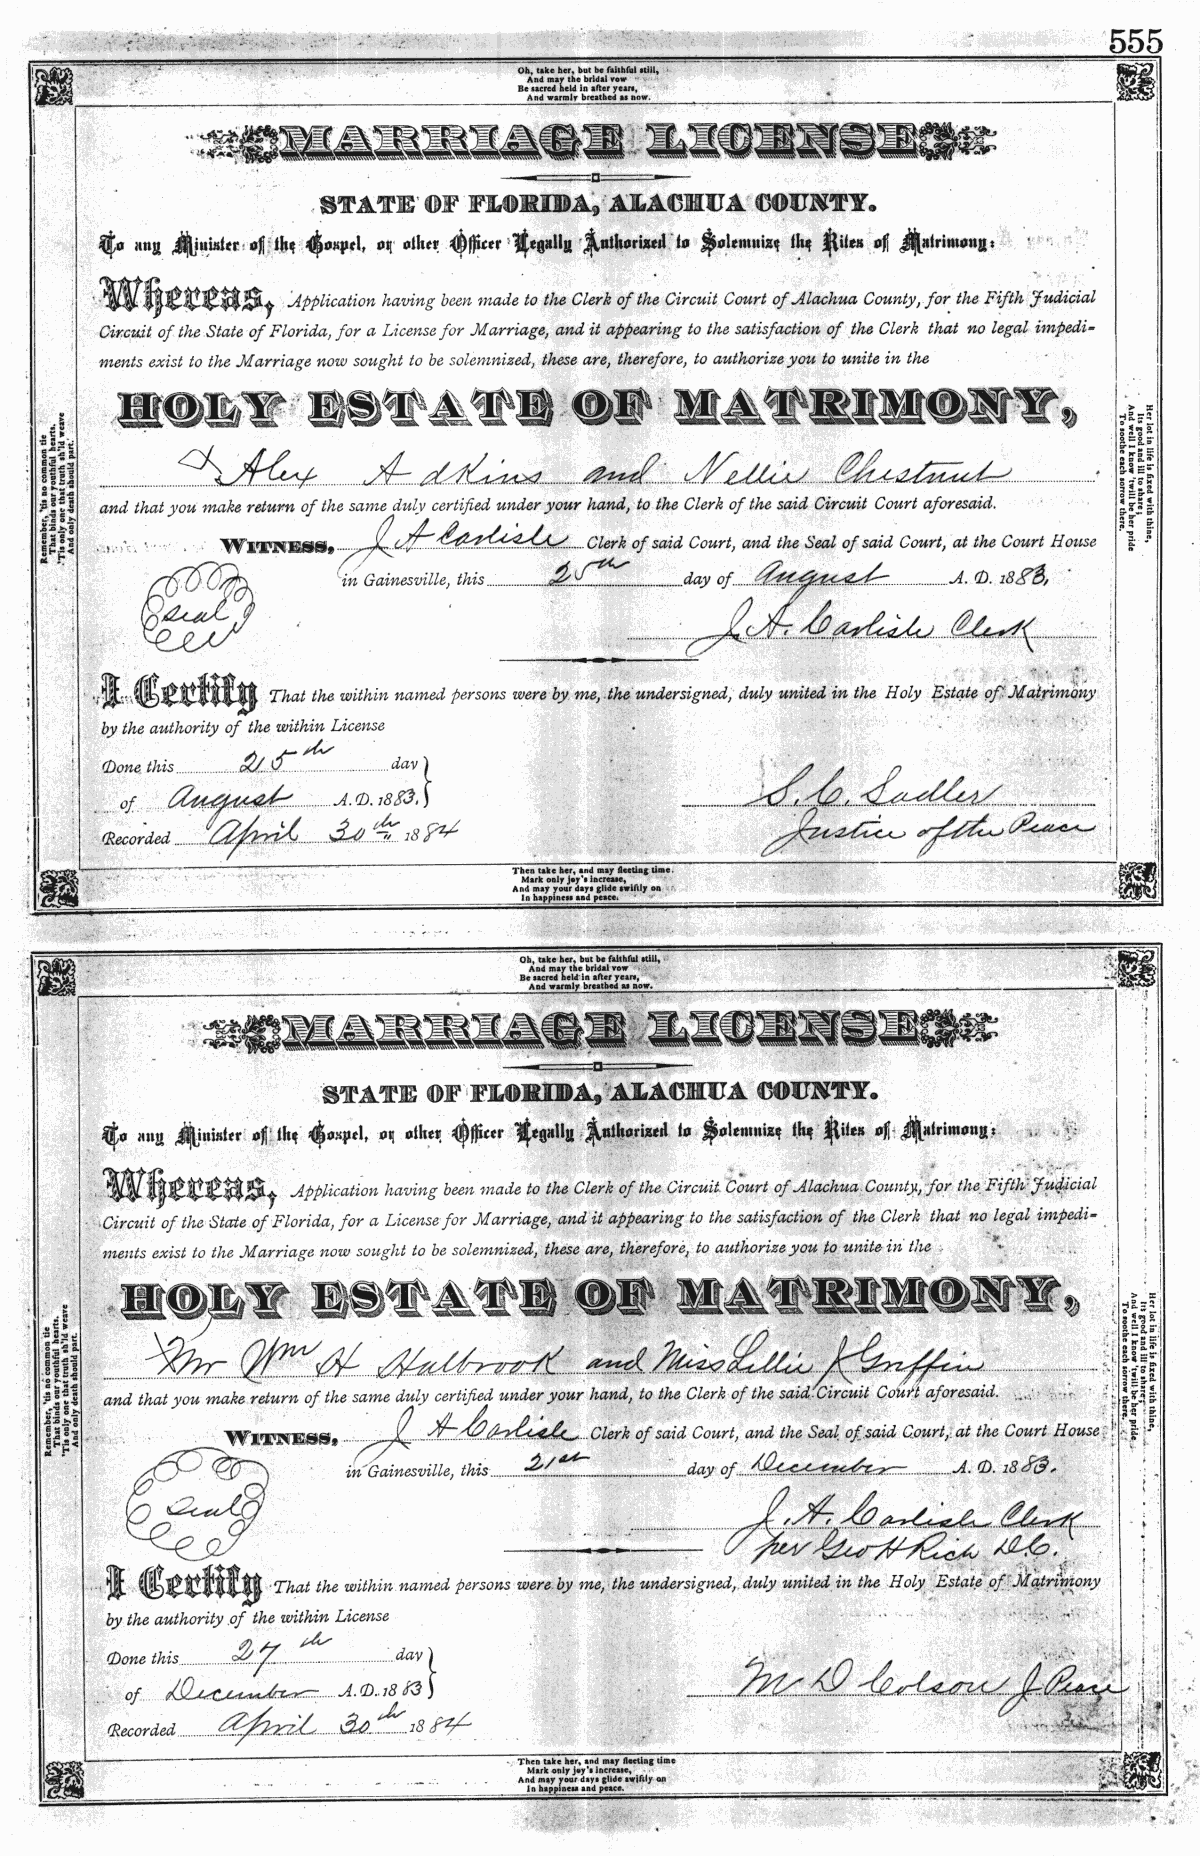 555
Oh, take her, but be faithful still,
And may the bridal vow
Be sacred held in after years,
And warmly breathed as now.
MARRIAGE LICENSE
STATE OF FLORIDA, ALACHUA COUNTY.
To any Minister of the Gospel, or other Officer Legally Authorized to Solemnize the Rites of Matrimony:
Whereas, Application having been made to the Clerk of the Circuit Court of Alachua County, for the Fifth Judicial
Circuit of the State of Florida, for a License for Marriage, and it appearing to the satisfaction of the Clerk that no legal impedi-
ments exist to the Marriage now sought to be solemnized, these are, therefore, to authorize you to unite in the
HOLY ESTATE OF MATRIMONY,
Alex Adkins and Nellie Chestnut
and that you make return of the same duly certified under your hand, to the Clerk of the said Circuit Court aforesaid.
WITNESS, J A Carlisle Clerk of said Court, and the Seal of said Court, at the Court House
in Gainesville, this 25th day of August A. D. 1883.
seal
J. A. Carlisle Clerk
I Certify That the within named persons were by me, the undersigned, duly united in the Holy Estate of Matrimony
by the authority of the within License
Done this 25th day
of August A.D. 1883.
S. C. Sadler
Recorded April 30th 1884
Justice of the Peace
Remember, 'tis no common tie
That binds our youthful hearts,
'Tis only one that truth sh'ld weave
And only death should part.
Her lot in life is fixed with thine,
Its good and ill to share;
And well I know 'twill be her pride
To soothe each sorrow there.
Then take her, and may fleeting time
Mark only joy's increase,
And may your days glide swiftly on
In happiness and peace.
Oh, take her, but be faithful still,
And may the bridal vow
Be sacred held in after years,
And warmly breathed as now.
MARRIAGE LICENSE
STATE OF FLORIDA, ALACHUA COUNTY.
To any Minister of the Gospel, or other Officer Legally Authorized to Solemnize the Rites of Matrimony:
Whereas, Application having been made to the Clerk of the Circuit Court of Alachua County, for the Fifth Judicial
Circuit of the State of Florida, for a License for Marriage, and it appearing to the satisfaction of the Clerk that no legal impedi-
ments exist to the Marriage now sought to be solemnized, these are, therefore, to authorize you to unite in the
HOLY ESTATE OF MATRIMONY,
Mr Wm H Halbrook and Miss Lillie J Griffin
and that you make return of the same duly certified under your hand, to the Clerk of the said Circuit Court aforesaid.
WITNESS, J A Carlisle Clerk of said Court, and the Seal of said Court, at the Court House
in Gainesville, this 21st day of December A. D. 1883.
seal
J. A. Carlisle Clerk
per Geo H Rich D.C.
I Certify That the within named persons were by me, the undersigned, duly united in the Holy Estate of Matrimony
by the authority of the within License
Done this 27th day
of December A.D. 1883
M D Colson J Peace
Recorded April 30th 1884
Remember, 'tis no common tie
That binds our youthful hearts.
'Tis only one that truth sh'ld weave
And only death should part.
Her lot in life is fixed with thine,
Its good and ill to share;
And well I know 'twill be her pride
To soothe each sorrow there.
Then take her, and may fleeting time
Mark only joy's increase,
And may your days glide swiftly on
In happiness and peace.